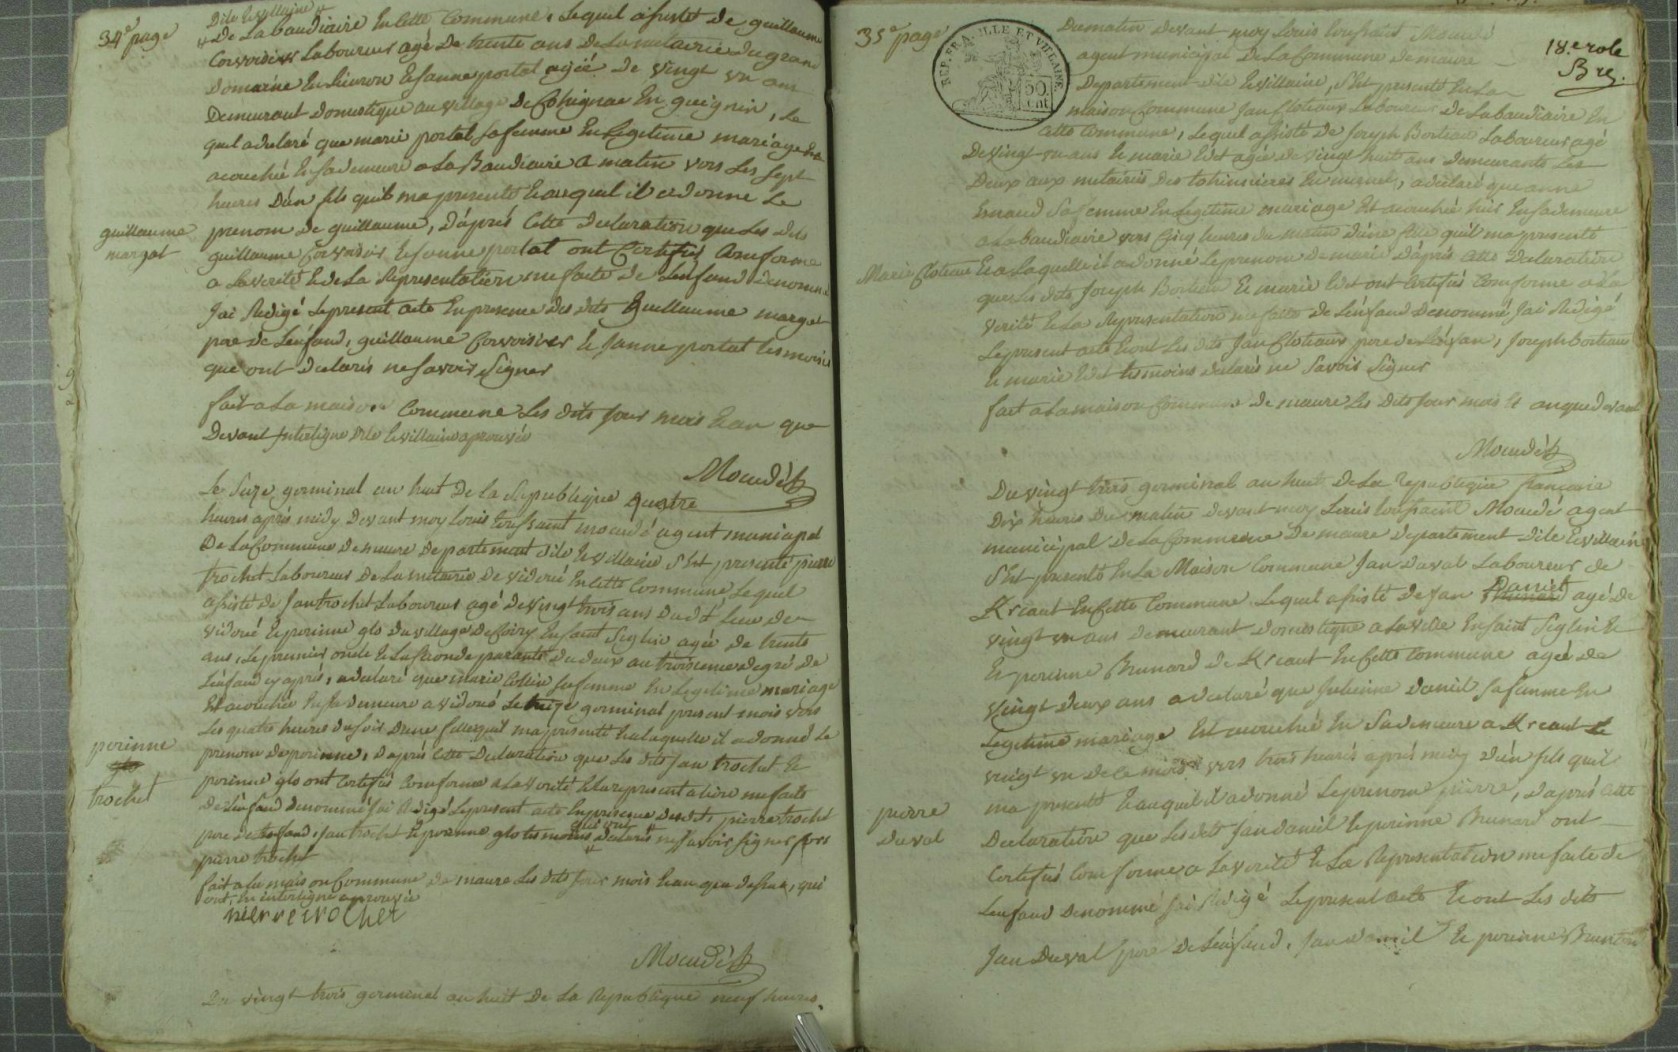 34e page
Dile Et villaine
De La baudiaire En Cette Commune, Lequel assisté de guillaume
Corvoisier Laboureur agé De trente ans De La metairie du grand
Domaine En Lieuron Et Janne portal agée De vingt un ans
Demeurant Domestique au village De Cohignac En guignen, Le
quel a declaré que marie portal sa femme En Legitime mariage Est
acouchée En sa demeure a La Baudiaire Ce matin vers Les sept
heures D'un fils qu'il ma presenté Et auquel il a donné Le
guillaume
margat
prenom De guillaume, D'aprés Cette Declaration que Les dits
guillaume Corvoisier Et Janne portal ont Certifiés Conforme
a La verité Et de La Representation me faite De L'enfand Denommé
Jai Redigé Le present acte En presence Des dits guillaume margat
pere De L'enfand, guillaume Corvoisier Et Janne portal temoins
que ont Declarés ne savoir Signer
fait a La maison Commune Les dits Jour mois Et an que
Devant Interligne Dile Et villaine aprouvée
Mouudé
Le Seize germinal an huit De La Republique quatre
heures aprés midy Devant moy Louis toussaint mouudé agent municipal
De La Commune De maure Departement Dile Et villaine S'Est presenté pierre
trochet Laboureur De La metairie De vidoué En Cette Commune Lequel
assisté de Jan trochet Laboureur agé De vingt trois ans Dudt Lieu De
vidoué Et perinne glo Du village De Coiry En saint Seglin agée De trente
ans, Le premier oncle Et La seconde parante du deux au troisieme degré De
L'enfand cy aprés, a declaré que marie Collin sa femme En Legitime mariage
Est acouchée En sa Demeure a vidoué Le seize germinal present mois vers
Les quatre heures du soir D'une fille qu'il ma presenté Et a Laquelle il a donné Le
perinne
trochet
prenom De perinne, D'aprés Cette Declaration que Les dits Jan trochet Et
perinne glo ont Certifiés Conforme a La verité Et La representation me faite
De L'enfand Denommé Jai Redigé Le present acte En presence Des dits pierre trochet
pere De L'enfand, Jan trochet Et perinne glo temoins qui ont Declarés ne savoir Signer fors
pierre trochet
fait a La maison Commune De maure Les dits Jour mois Et an que Dessus, qui
ont, En interligne aprouvée
pierre trochet
Mouudé
Du vingt trois germinal an huit De La Republique neuf heures
35e page
REP. FRA. ILLE ET VILAINE
50 cent
18.e role
Du matin Devant moy Louis toussaint Mouudé
agent municipal De La Commune De maure
Departement Dile Et villaine, S'Est presenté En La
maison Commune Jan Cloteaux Laboureur De La baudiaire En
Cette Commune, Lequel assisté De Joseph Borteau Laboureur agé
De vingt un ans Et marie agée De vingt huit ans Demeurants Les
Deux aux metairies Des En mernel, a declaré que anne
Ernaud Sa femme En Legitime mariage Est acouchée hier En sa demeure
a La baudiaire vers Cinq heures du matin D'une fille qu'il ma presenté
Marie Cloteaux
Et a Laquelle il a donné Le prenom De marie D'aprés Cette Declaration
que Les dits Joseph Borteau Et marie ont Certifiés Conforme a La
verité Et La Representation me faite De L'enfand Denommé Jai Redigé
Le present acte Et ont Les dits Jan Cloteaux pere De L'enfand, Joseph Borteau
Et marie temoins declarés ne Savoir Signer
fait a La maison Commune De maure Les dits Jour mois Et an que devant
Mouudé
Du vingt trois germinal an huit De La Republique francaise
Dix heures Du matin Devant moy Louis toussaint Mouudé agent
municipal De La Commune De maure Departement Dile Et villaine
S'Est presenté En La Maison Commune Jan Duval Laboureur de
Kreaut En Cette Commune Lequel assisté De Jan Daniel agé De
vingt un ans Demeurant Domestique a La ville En Saint Seglin Et
Et perinne Brunard De Kreaut En Cette Commune agée De
vingt Deux ans a declaré que Julienne Daniel Sa femme En
Legitime mariage Est acouchée En Sa demeure a Kreaut Le
vingt un De Ce mois vers trois heures aprés midy D'un fils qu'il
pierre
duval
ma presenté Et auquel il a donné Le prenom pierre, D'aprés Cette
Declaration que Les dits Jan Daniel Et perinne Brunard ont
Certifiés Conforme a La verité Et La Representation me faite de
L'enfand Denommé Jai Redigé Le present acte Et ont Les dits
Jan Duval pere De L'enfand, Jan Daniel Et perinne Brunard